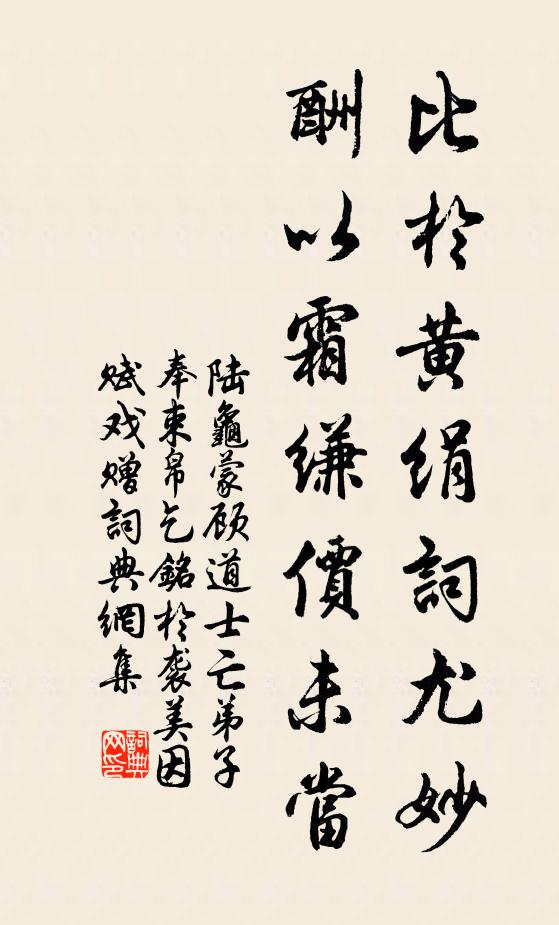 比於黄絹詞尤妙
酬以霜縑價未當
陆龜蒙顾道士亡弟子
奉束帛乞銘於袭美因
赋戏赠詞典網集
詞典
网印